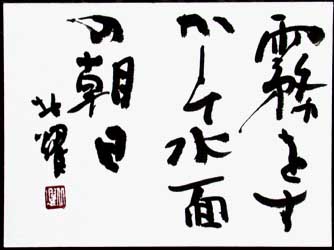 霧をす
かして水面
の朝日